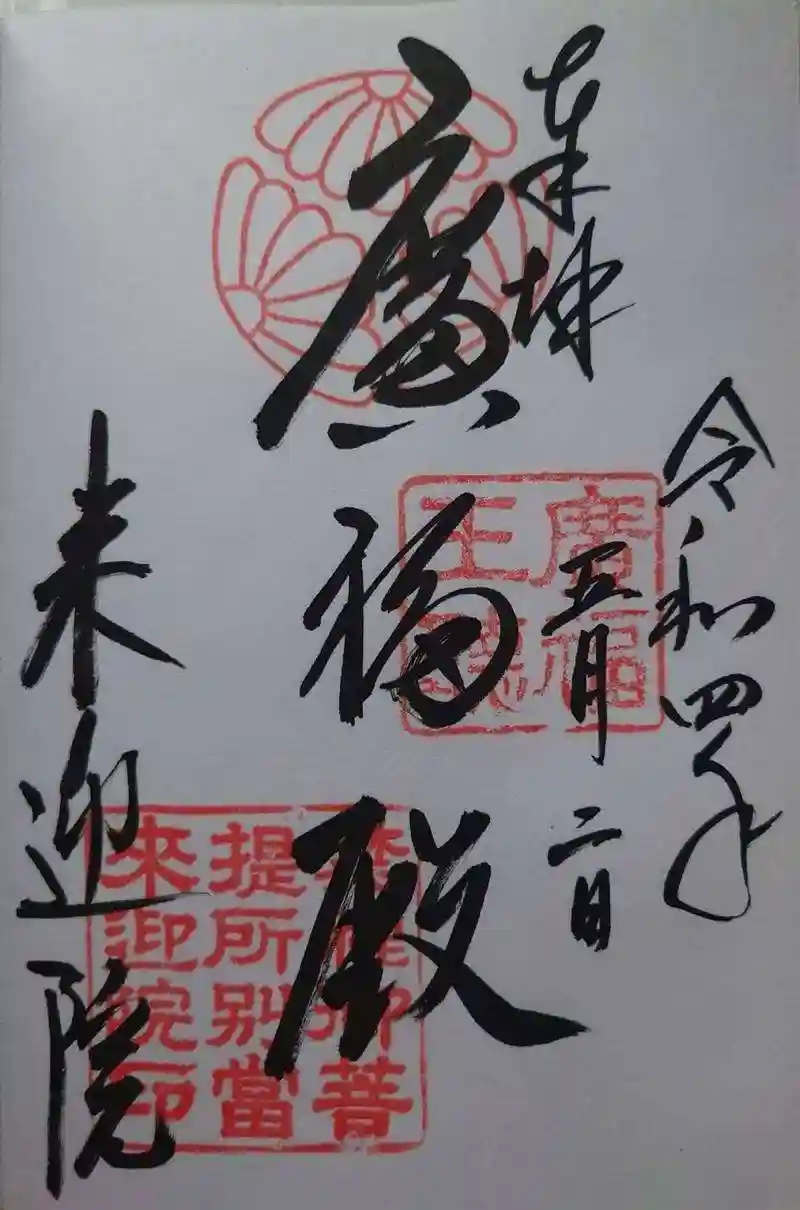 奉拝
令和四年
五月二日
廣福殿
来迎院
廣福
提所別當
來迎院印